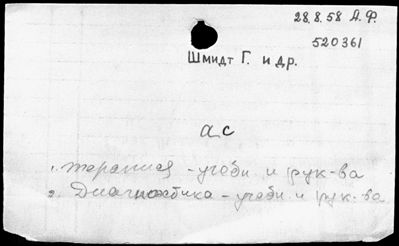 28.8.58 А.Ф.
520361
Шмидт Г. и др.
ас
1. терапия - учебн. и рук-ва
2. Диагностика - учебн. и рук-ва